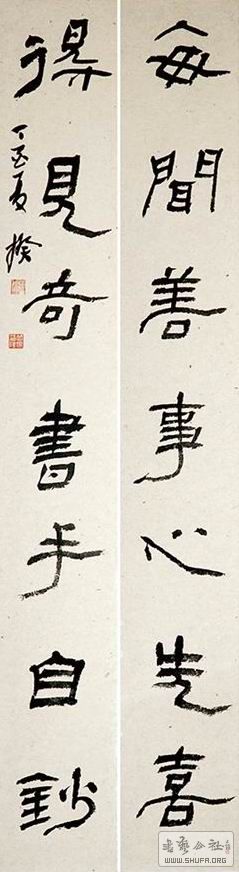 每聞善事心先喜
得見奇書手自鈔
丁丑夏 揆
書藝公社
WWW.SHUFA.ORG